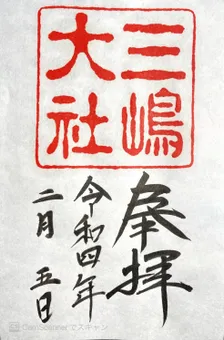 三嶋
大社
奉拝
令和四年
二月五日
CamScanner でスキャン